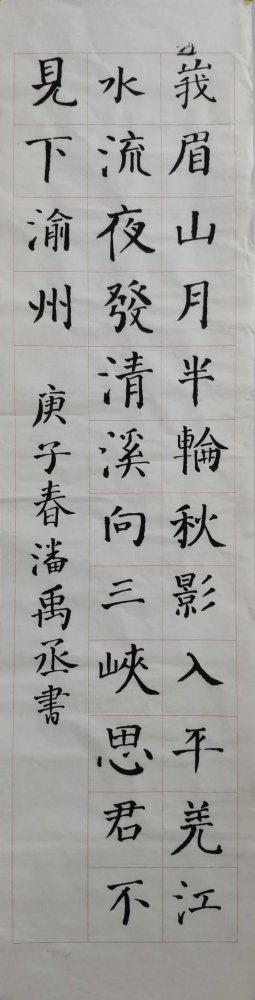 莪眉山月半輪秋影入平羌江
水流夜發清溪向三峽思君不
見下渝州
庚子春潘禹丞書